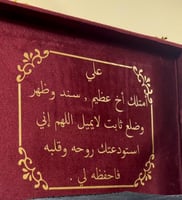 علي
امتلك أخ عظيم , سند وظهر
وضلع ثابت لايميل اللهم إني
استودعتك روحه وقلبه
فاحفظه لي .